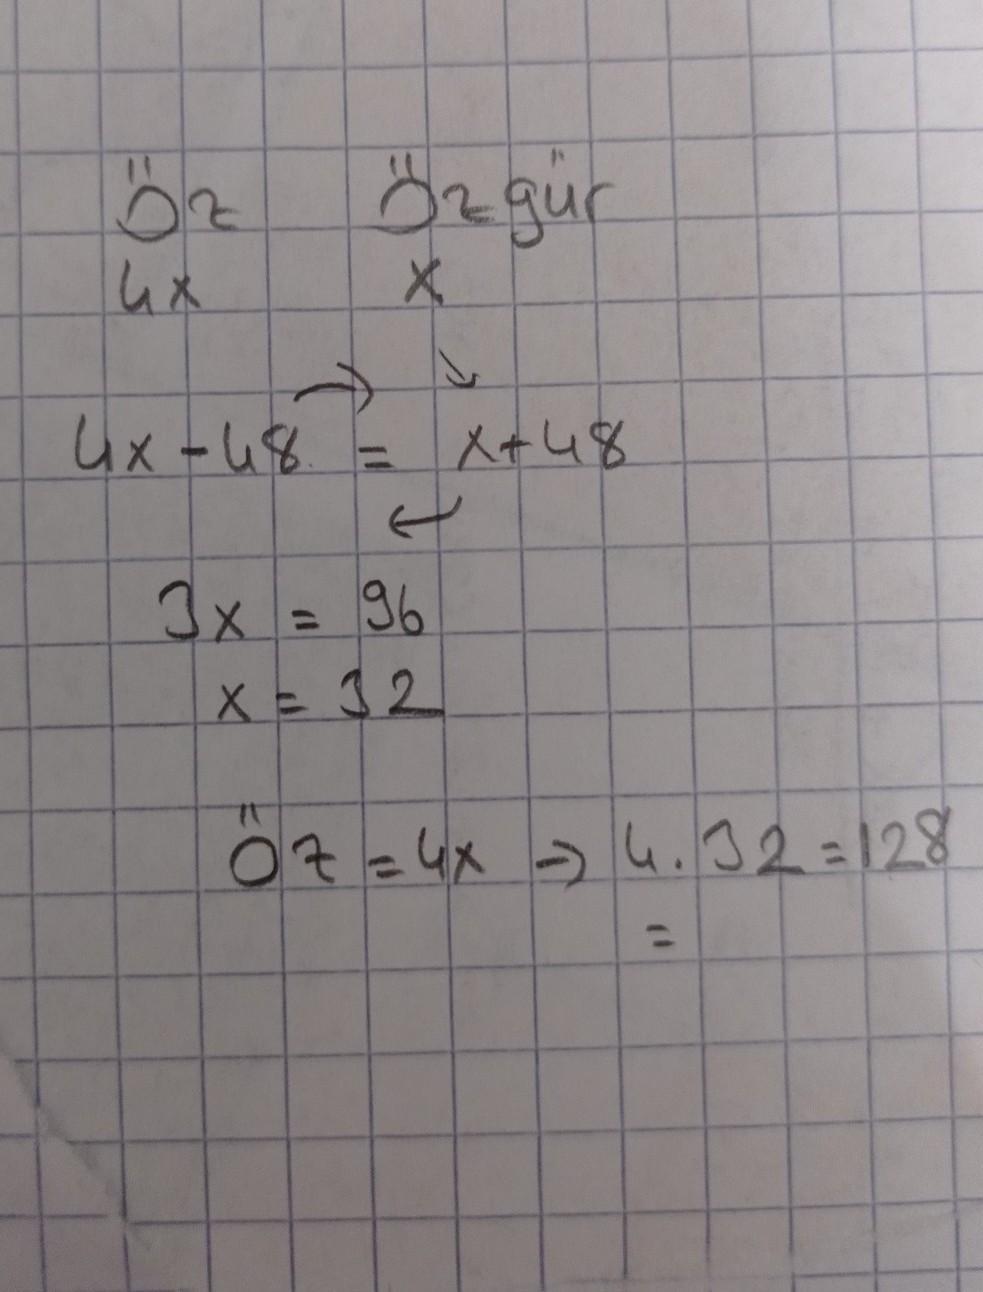 Öz Özgür
4x x
4x - 48 = x + 48
3x = 96
x = 32
Öz = 4x → 4 . 32 = 128
=